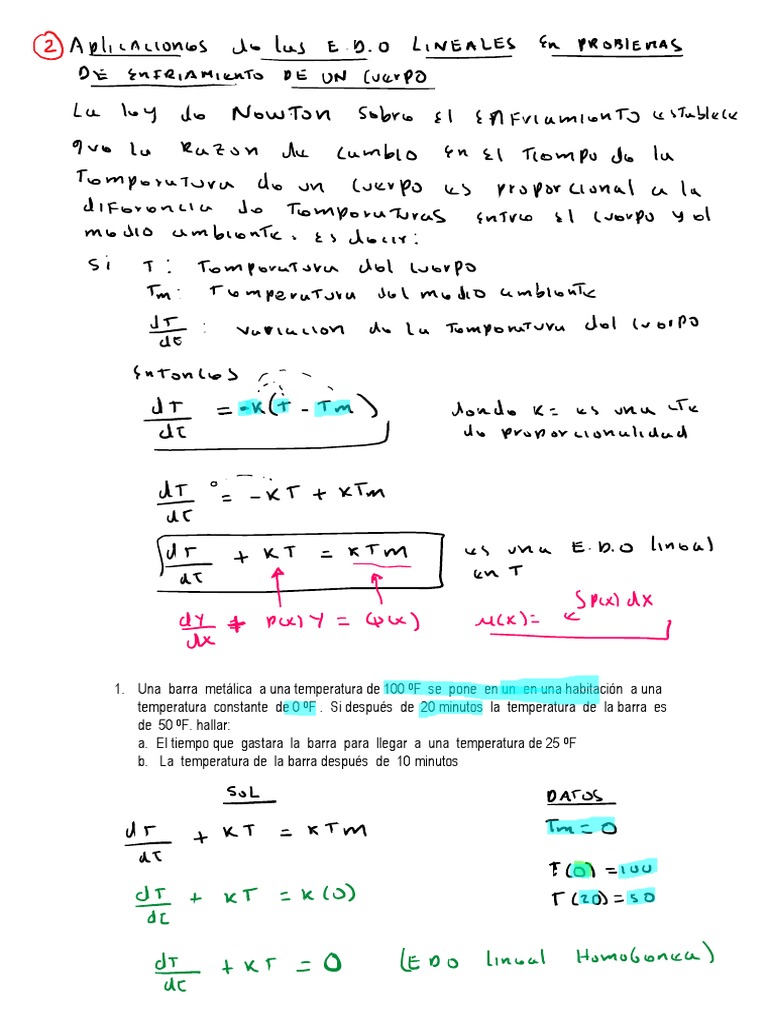 2 Aplicaciones de las E.D.O LINEALES en PROBLEMAS
DE enfriamiento DE UN Cuerpo
La ley de Newton sobre el enfriamiento establece
que la Razon de cambio en el Tiempo de la
Temperatura de un cuerpo es proporcional a la
diferencia de Temperaturas entre el cuerpo y el
medio ambiente. Es decir:
Si T: Temperatura del cuerpo
Tm: Temperatura del medio ambiente
dT/dt : variacion de la Temperatura del cuerpo
Entonces
dT/dt = -K(T - Tm) donde K= es una cte
de proporcionalidad
dT/dt = -KT + KTm
dT/dt + KT = KTm es una E.D.O lineal
en T
dy/dx + P(x) Y = Q(x) μ(x) = e^∫P(x) dx
1. Una barra metálica a una temperatura de 100 ºF se pone en un en una habitación a una
temperatura constante de 0 ºF . Si después de 20 minutos la temperatura de la barra es
de 50 ºF. hallar:
a. El tiempo que gastara la barra para llegar a una temperatura de 25 ºF
b. La temperatura de la barra después de 10 minutos
SOL DATOS
dT/dt + KT = KTM Tm = 0
T(0) = 100
dT/dt + KT = K(0) T(20) = 50
dT/dt + KT = 0 (EDO lineal Homogenea)